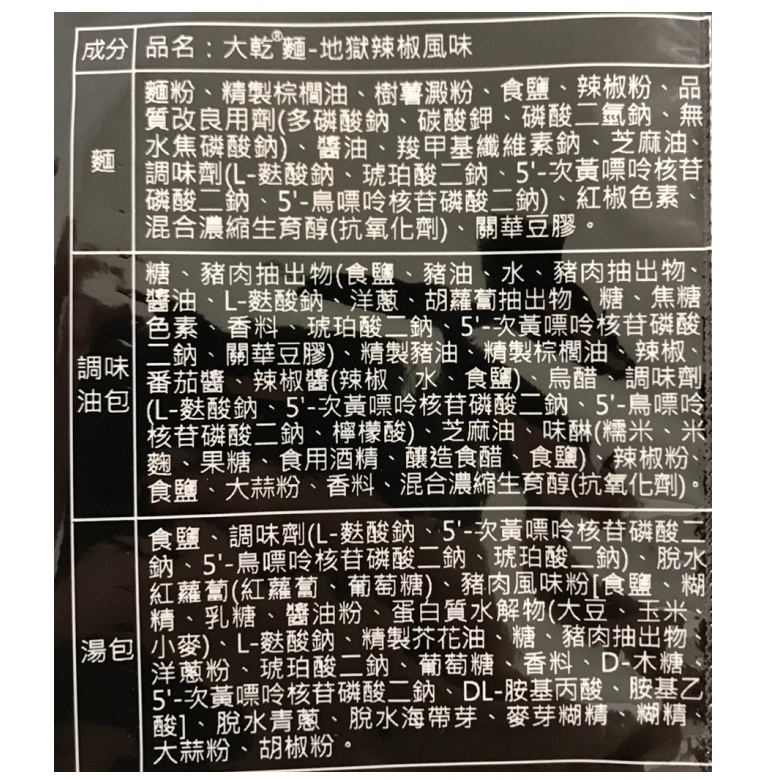 成分 品名：大乾®麵-地獄辣椒風味
麵
麵粉、精製棕櫚油、樹薯澱粉、食鹽、辣椒粉、品
質改良用劑(多磷酸鈉、碳酸鉀、磷酸二氫鈉、無
水焦磷酸鈉)、醬油、羧甲基纖維素鈉、芝麻油、
調味劑(L-麩酸鈉、琥珀酸二鈉、5'-次黃嘌呤核苷
磷酸二鈉、5'-鳥嘌呤核苷磷酸二鈉)、紅椒色素、
混合濃縮生育醇(抗氧化劑)、關華豆膠。
調味
油包
糖、豬肉抽出物(食鹽、豬油、水、豬肉抽出物、
醬油、L-麩酸鈉、洋蔥、胡蘿蔔抽出物、糖、焦糖
色素、香料、琥珀酸二鈉、5'-次黃嘌呤核苷磷酸
二鈉、關華豆膠)、精製豬油、精製棕櫚油、辣椒、
番茄醬、辣椒醬(辣椒、水、食鹽)、烏醋、調味劑
(L-麩酸鈉、5'-次黃嘌呤核苷磷酸二鈉、5'-鳥嘌呤
核苷磷酸二鈉、檸檬酸)、芝麻油、味醂(糯米、米
麴、果糖、食用酒精、釀造食醋、食鹽)、辣椒粉、
食鹽、大蒜粉、香料、混合濃縮生育醇(抗氧化劑)。
湯包
食鹽、調味劑(L-麩酸鈉、5'-次黃嘌呤核苷磷酸二
鈉、5'-鳥嘌呤核苷磷酸二鈉、琥珀酸二鈉)、脫水
紅蘿蔔(紅蘿蔔、葡萄糖)、豬肉風味粉[食鹽、糊
精、乳糖、醬油粉、蛋白質水解物(大豆、玉米、
小麥)、L-麩酸鈉、精製芥花油、糖、豬肉抽出物、
洋蔥粉、琥珀酸二鈉、葡萄糖、香料、D-木糖、
5'-次黃嘌呤核苷磷酸二鈉、DL-胺基丙酸、胺基乙
酸]、脫水青蔥、脫水海帶芽、麥芽糊精、糊精、
大蒜粉、胡椒粉。